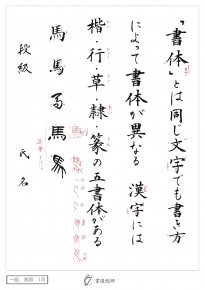 「書体」とは同じ文字でも書き方
によって書体が異なる 漢字には
楷・行・草・隷・篆の五書体がある
馬 馬 馬 馬 馬
段級 氏名
一般 表現 1月